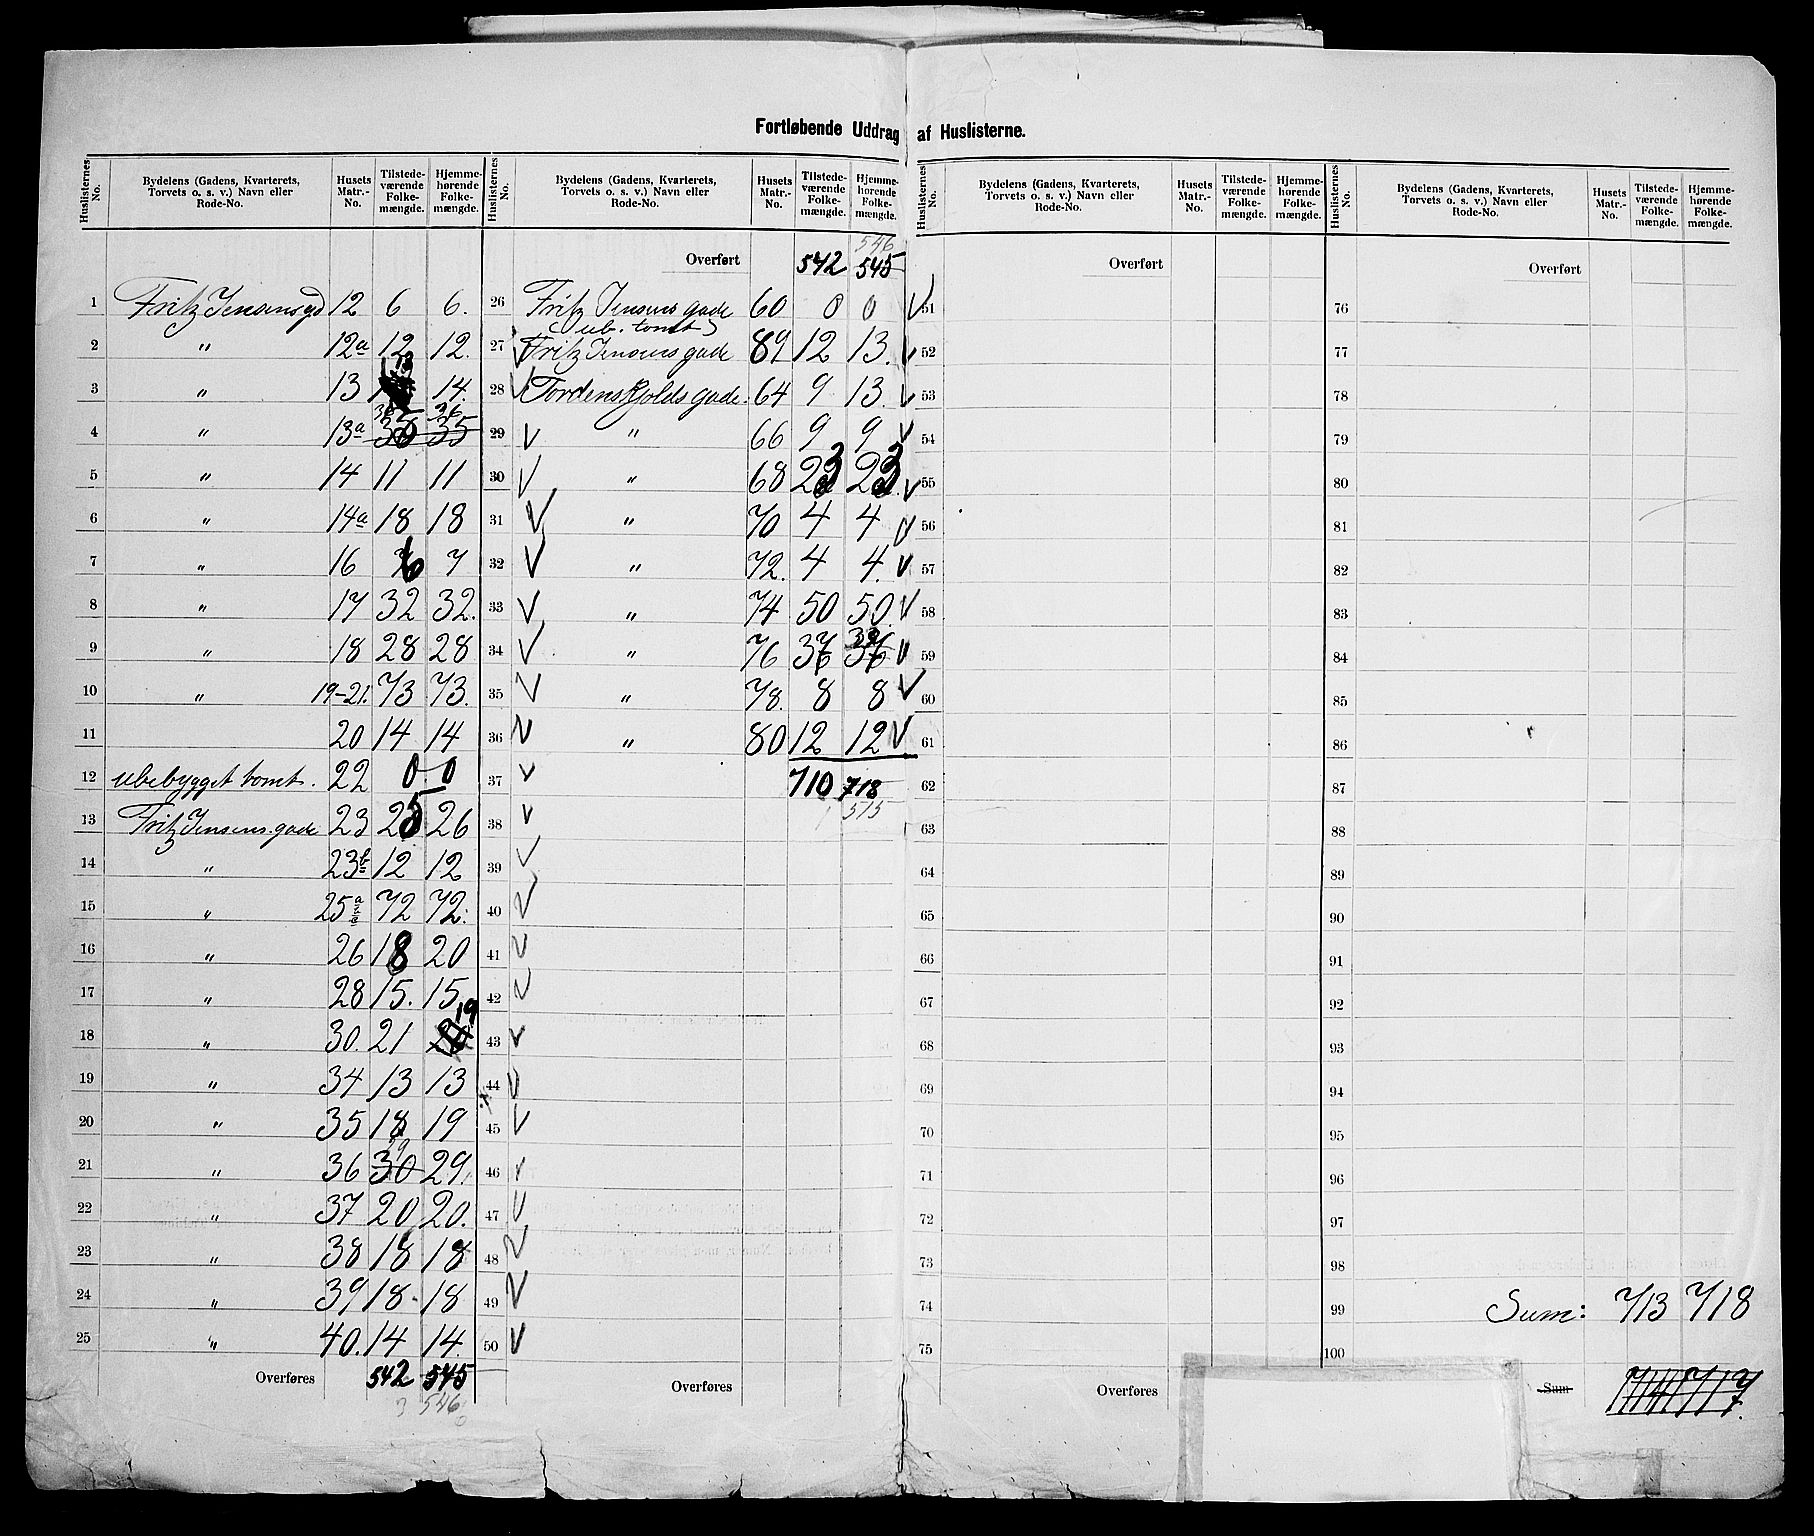 Fortløbende Uddrag af Huslisterne.
Huslisternes No. | Bydelens (Gadens, Kvarterets, Torvets o. s. v.) Navn eller Rode-No. | Husets Matr.-No. | Tilstede-værende Folke-mængde. | Hjemme-hørende Folke-mængde.
1 Fritz Jensensgd 12 6 6.
2 " 12a 12 12.
3 " 13 13 14.
4 " 13a 36 36
5 " 14 11 11
6 " 14a 18 18
7 " 16 6 7
8 " 17 32 32.
9 " 18 28 28
10 " 19-21. 73 73.
11 20 14 14
12 ubebygget tomt. 22 0 0
13 Fritz Jensens gade 23 25 26
14 " 23b 12 12
15 " 25a 72 72.
16 " 26 18 20
17 " 28 15. 15
18 " 30. 21 19
19 " 34 13 13
20 " 35 18 19
21 " 36 30 29.
22 " 37 20 20.
23 " 38 18 18
24 " 39 18 18
25 " 40. 14 14.
Overføres 542 545
3 546
Huslisternes No. | Bydelens (Gadens, Kvarterets, Torvets o. s. v.) Navn eller Rode-No. | Husets Matr.-No. | Tilstede-værende Folke-mængde. | Hjemme-hørende Folke-mængde.
546
Overført 542 545
26 Fritz Jensens gade 60 0 0 V
(ub. tomt)
27 V Fritz Jensens gade 89 12 13. V
28 V Tordenskjolds gade. 64 9 13. V
29 V " 66 9 9 V
30 V " 68 23 23 V
31 V " 70 4 4 V
32 V " 72. 4 4. V
33 V " 74 50 50. V
34 V " 76 37 37 V
35 V " 78. 8 8 V
36 V " 80 12 12 V
37 V 710 718
38 V 515
39 V
40 V
41 V
42 V
43 V
44 V
45 V
46 V
47 V
48 V
49 V
50 V
Overføres
Huslisternes No. | Bydelens (Gadens, Kvarterets, Torvets o. s. v.) Navn eller Rode-No. | Husets Matr.-No. | Tilstede-værende Folke-mængde. | Hjemme-hørende Folke-mængde.
Overført
51
52
53
54
55
56
57
58
59
60
61
62
63
64
65
66
67
68
69
70
71
72
73
74
75
Overføres
Huslisternes No. | Bydelens (Gadens, Kvarterets, Torvets o. s. v.) Navn eller Rode-No. | Husets Matr.-No. | Tilstede-værende Folke-mængde. | Hjemme-hørende Folke-mængde.
Overført
76
77
78
79
80
81
82
83
84
85
86
87
88
89
90
91
92
93
94
95
96
97
98
99 Sum: 713 718
100
Sum 714 717